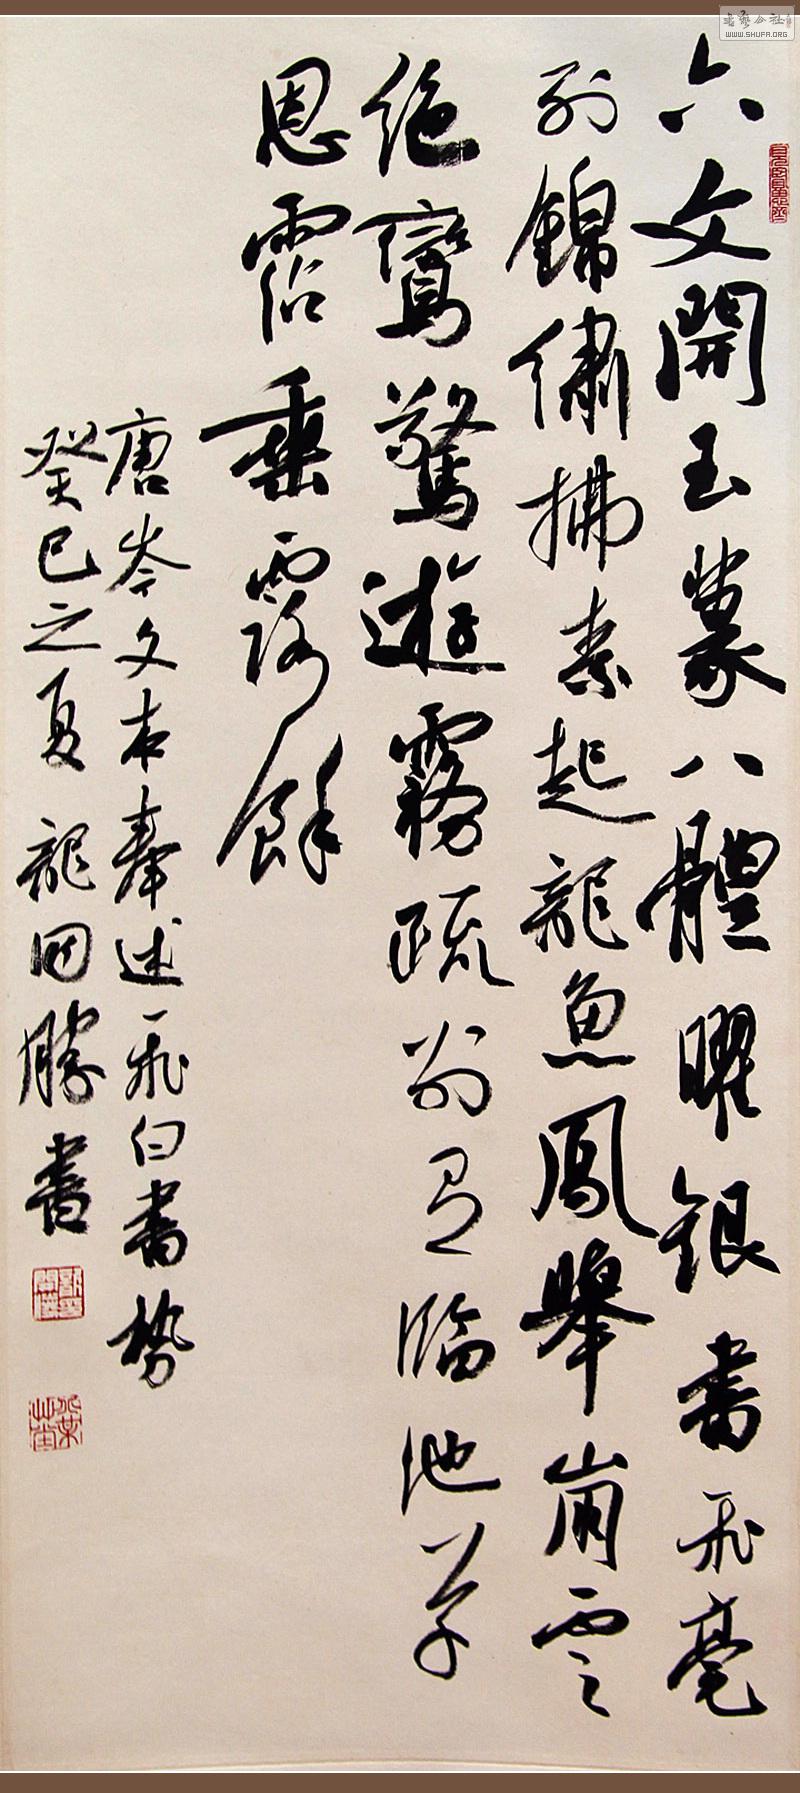 六文開玉篆八體曜銀書飛毫
列錦繡拂素起龍魚鳳舉崩雲
絕鸞驚遊霧疏別有臨池草
恩霑垂露餘
唐岑文本奉述飛白書勢
癸巳之夏龍開勝書
書藝公社
WWW.SHUFA.ORG